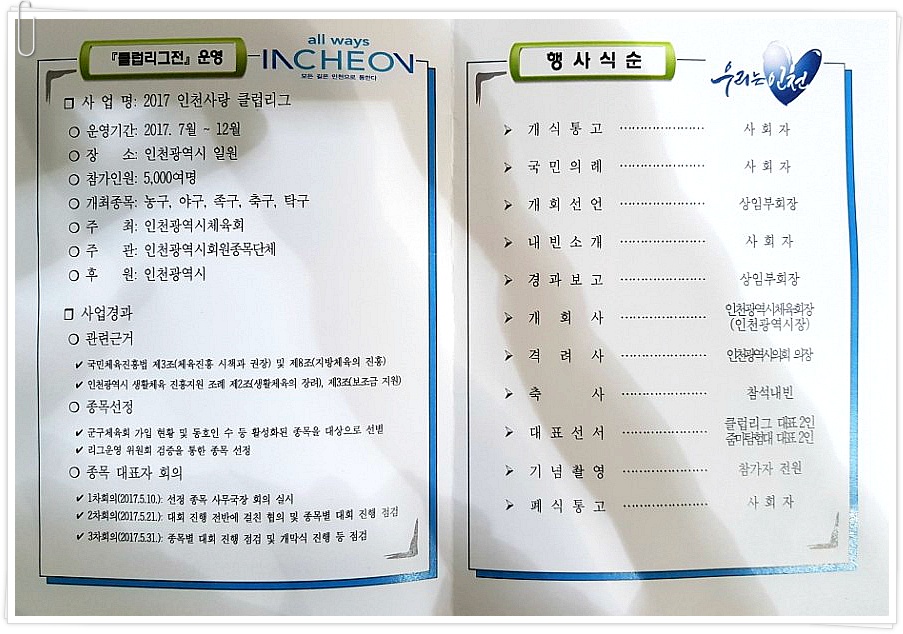 『클럽리그전』 운영
all ways
INCHEON
모든 길은 인천으로 통한다
❒ 사 업 명: 2017 인천사랑 클럽리그
❍ 운영기간: 2017. 7월 ~ 12월
❍ 장 소: 인천광역시 일원
❍ 참가인원: 5,000여명
❍ 개최종목: 농구, 야구, 족구, 축구, 탁구
❍ 주 최: 인천광역시체육회
❍ 주 관: 인천광역시회원종목단체
❍ 후 원: 인천광역시
❒ 사업경과
❍ 관련근거
✔ 국민체육진흥법 제3조(체육진흥 시책과 권장) 및 제8조(지방체육의 진흥)
✔ 인천광역시 생활체육 진흥지원 조례 제2조(생활체육의 장려), 제3조(보조금 지원)
❍ 종목선정
✔ 군구체육회 가입 현황 및 동호인 수 등 활성화된 종목을 대상으로 선별
✔ 리그운영 위원회 검증을 통한 종목 선정
❍ 종목 대표자 회의
✔ 1차회의(2017.5.10.): 선정 종목 사무국장 회의 실시
✔ 2차회의(2017.5.21.): 대회 진행 전반에 걸친 협의 및 종목별 대회 진행 점검
✔ 3차회의(2017.5.31.): 종목별 대회 진행 점검 및 개막식 진행 등 점검
행 사 식 순
우리는 인천
➤ 개 식 통 고 ························ 사 회 자
➤ 국 민 의 례 ························ 사 회 자
➤ 개 회 선 언 ························ 상임부회장
➤ 내 빈 소 개 ························ 사 회 자
➤ 경 과 보 고 ························ 상임부회장
➤ 개 회 사 ························ 인천광역시체육회장
(인천광역시장)
➤ 격 려 사 ························ 인천광역시의회 의장
➤ 축 사 ························ 참석내빈
➤ 대 표 선 서 ························ 클럽리그 대표 2인
줌마탐험대 대표 2인
➤ 기 념 촬 영 ························ 참가자 전원
➤ 폐 식 통 고 ························ 사 회 자